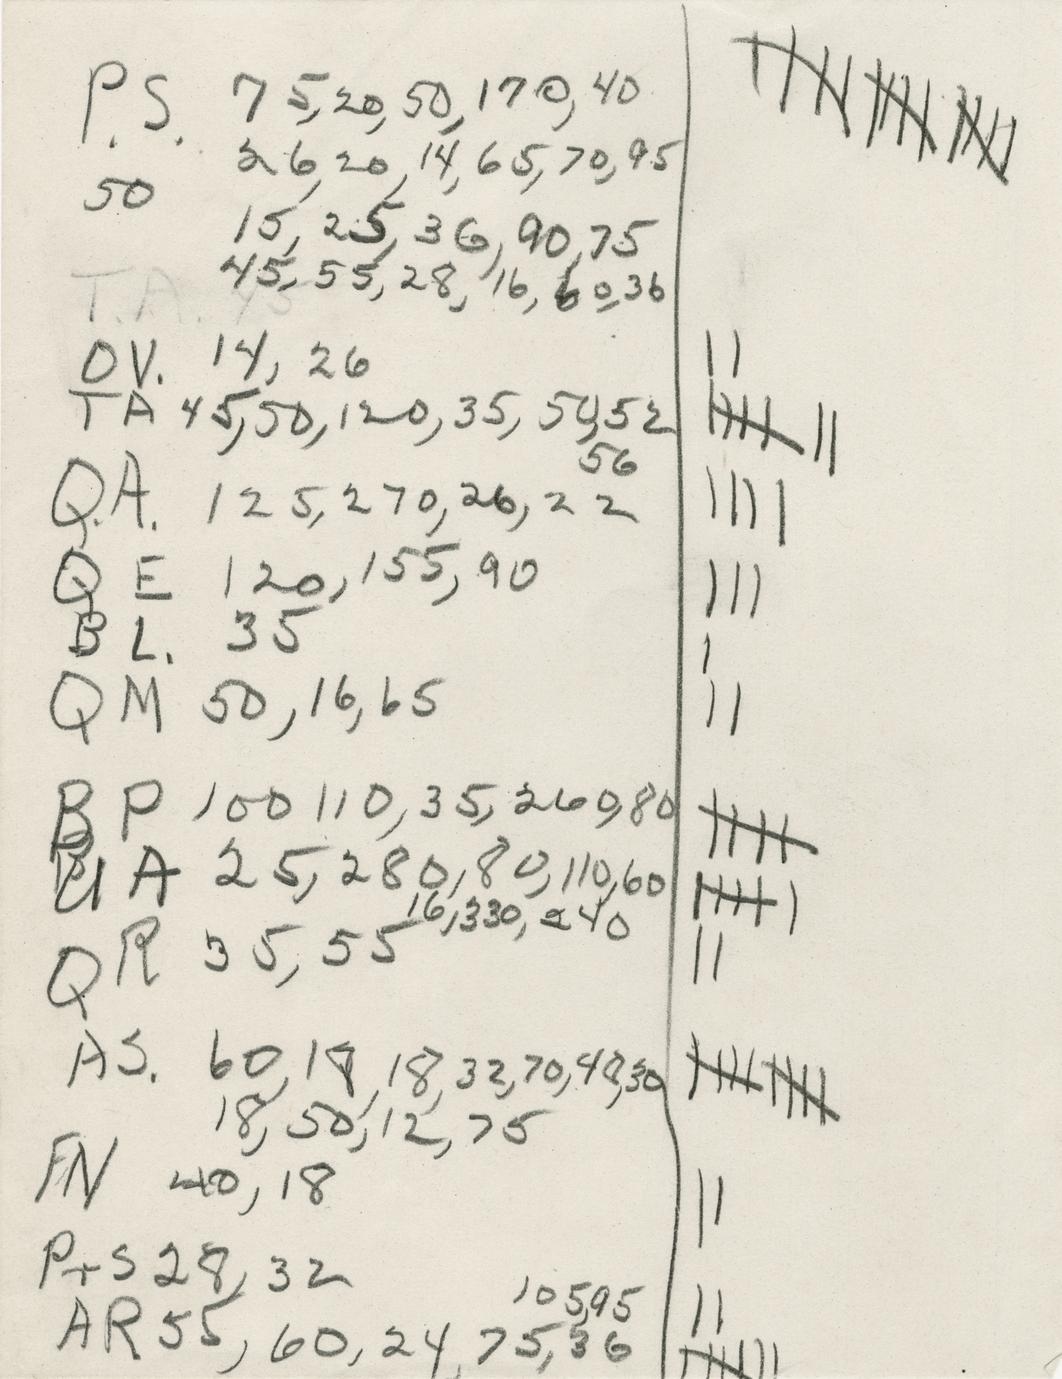 P.S. 75, 20, 50, 170, 40
26, 20, 14, 65, 70, 95
50
15, 25, 36, 90, 75
45, 55, 28, 16, 60, 36
T.A. 45
OV. 14, 26
TA 45, 50, 120, 35, 50, 52
56
Q.A. 125, 270, 26, 22
Q E 120, 155, 90
B L. 35
QM 50, 16, 65
BP 100 110, 35, 260, 80
UA 25, 280, 80, 110, 60
16, 330, 240
QR 35, 55
AS. 60, 18, 18, 32, 70, 48, 30
18, 50, 12, 75
FN 40, 18
P+S 28, 32
105, 95
AR 55, 60, 24, 75, 36